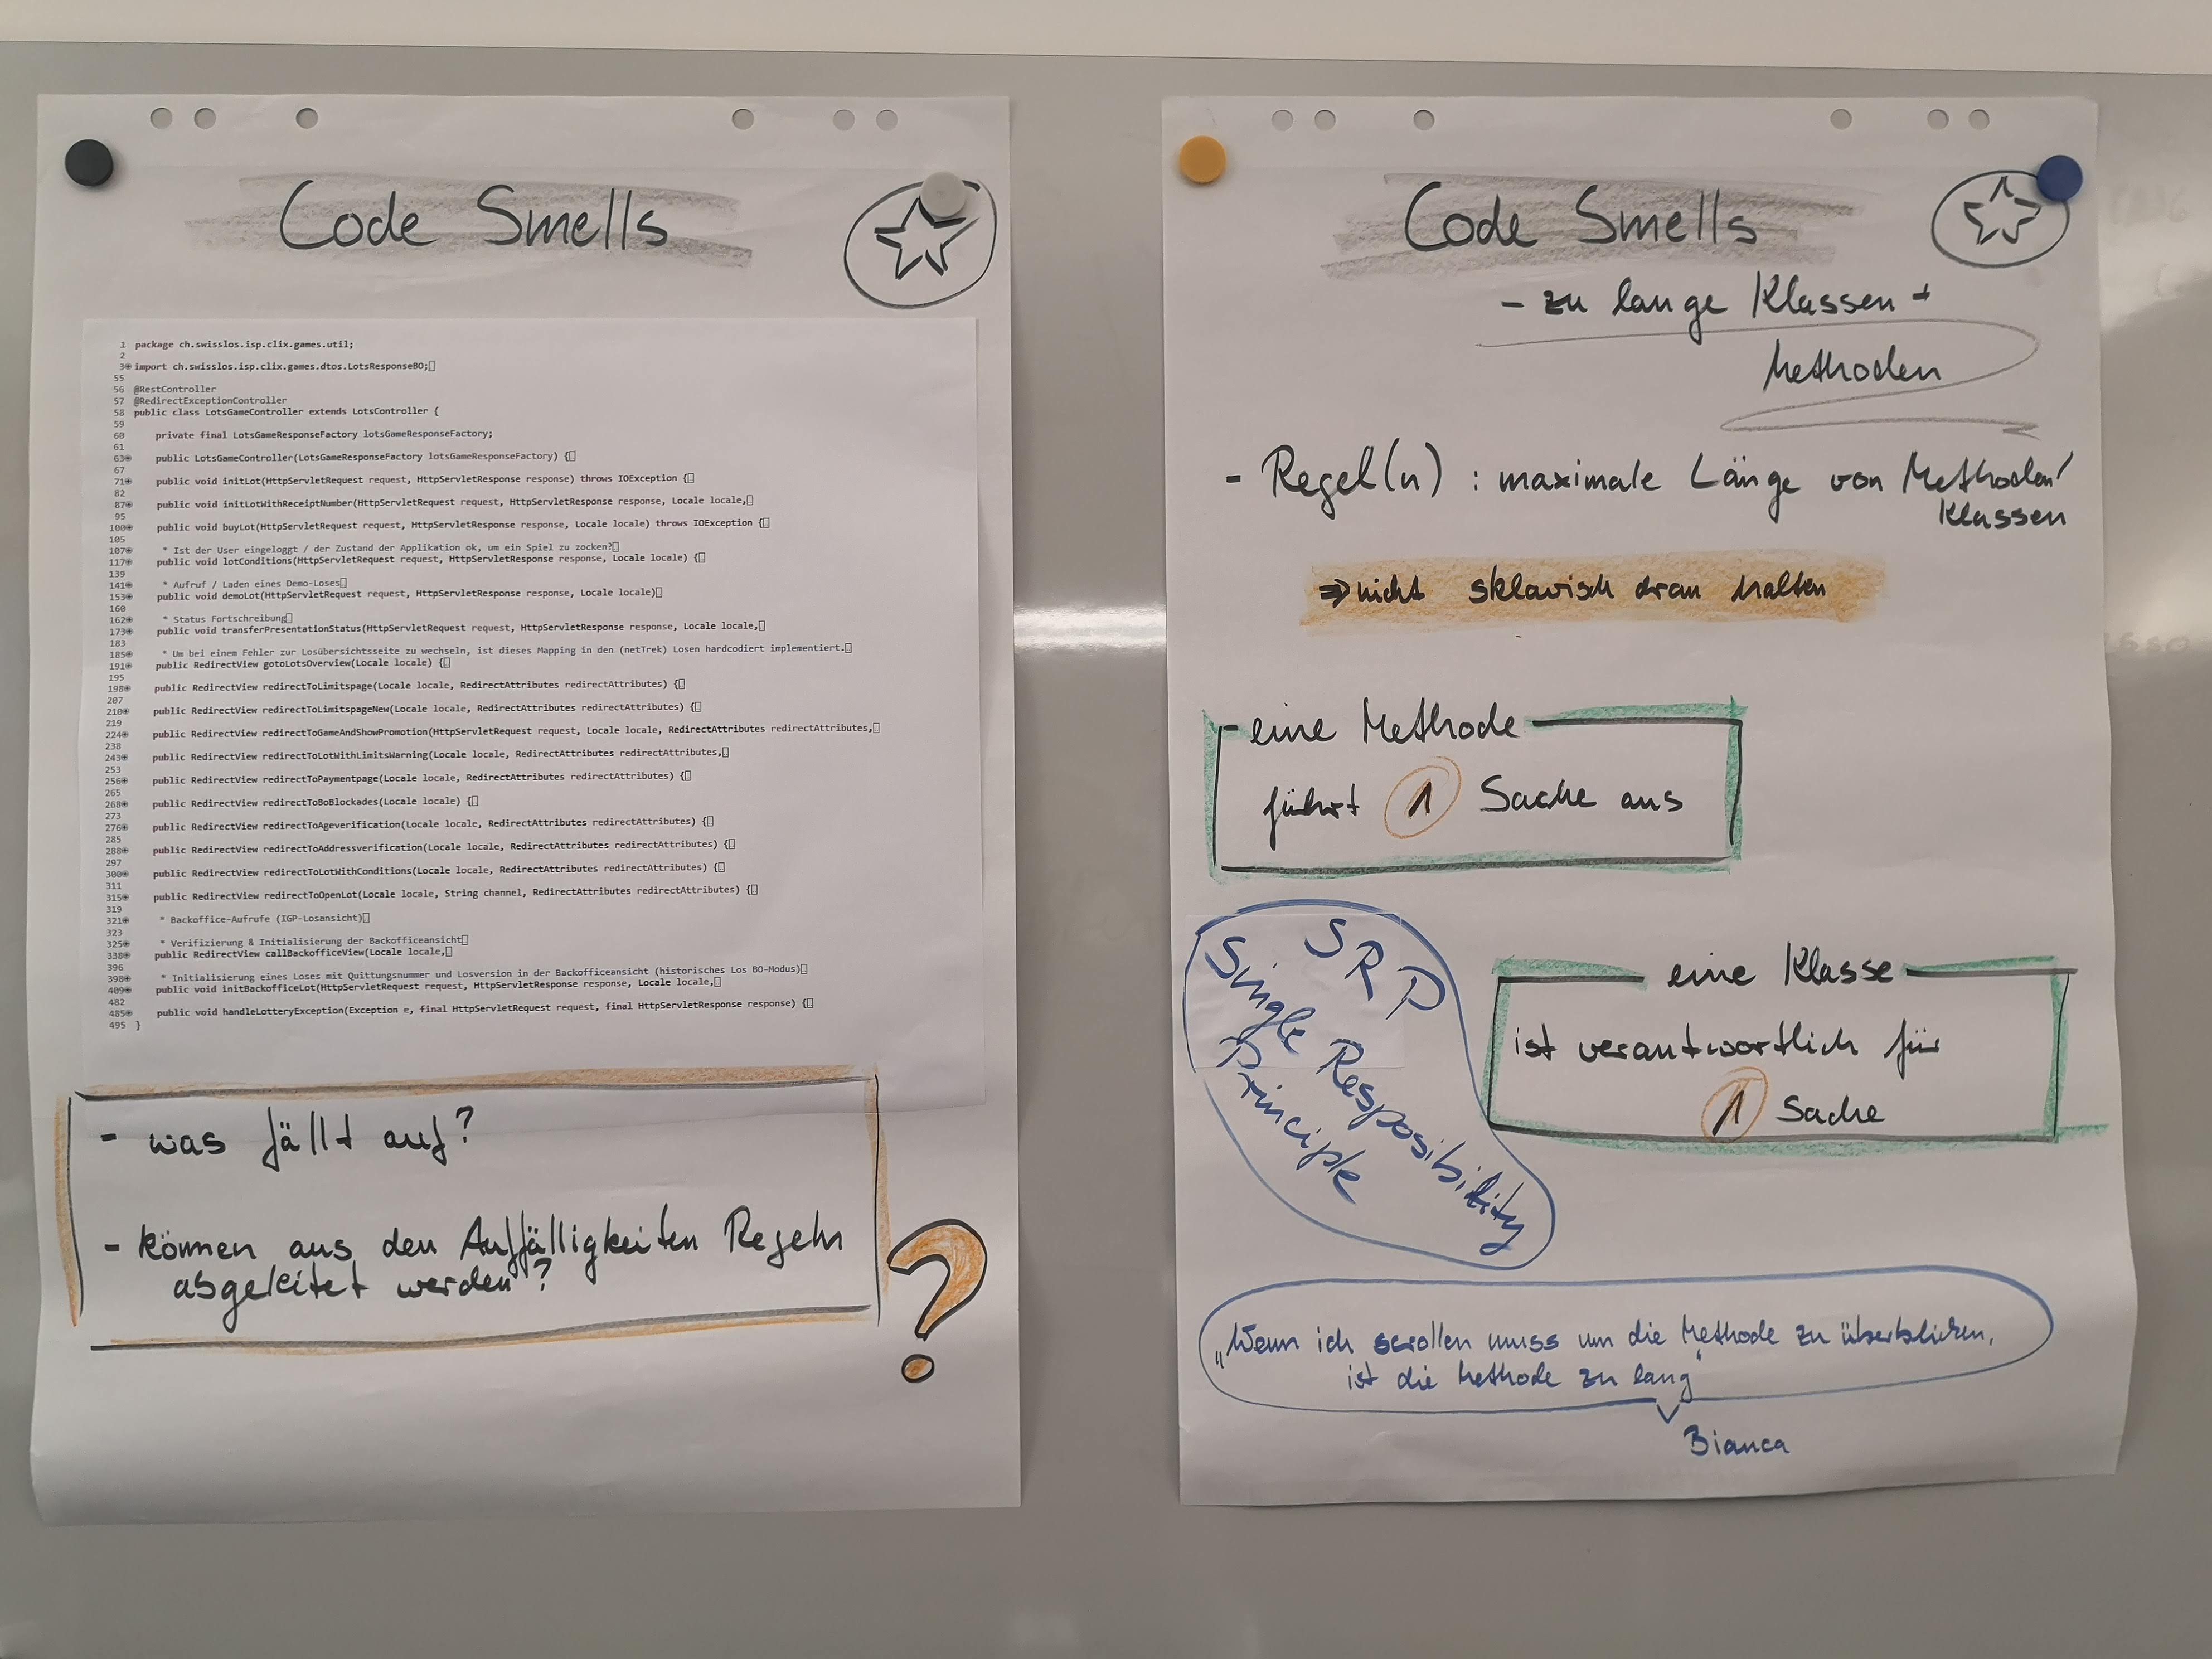 Code Smells
1 package ch.swisslos.isp.clix.games.util;
2
3 import ch.swisslos.isp.clix.games.dtos.LotsResponseBO;
55
56 @RestController
57 @RedirectExceptionController
58 public class LotsGameController extends LotsController {
59
60 private final LotsGameResponseFactory lotsGameResponseFactory;
61
63 public LotsGameController(LotsGameResponseFactory lotsGameResponseFactory) {
67
71 public void initLot(HttpServletRequest request, HttpServletResponse response) throws IOException {
82
87 public void initLotWithReceiptNumber(HttpServletRequest request, HttpServletResponse response, Locale locale,
95
100 public void buyLot(HttpServletRequest request, HttpServletResponse response, Locale locale) throws IOException {
105
107 * Ist der User eingeloggt / der Zustand der Applikation ok, um ein Spiel zu zocken?
117 public void lotConditions(HttpServletRequest request, HttpServletResponse response, Locale locale) {
139
141 * Aufruf / Laden eines Demo-Loses
153 public void demoLot(HttpServletRequest request, HttpServletResponse response, Locale locale)
160
162 * Status Fortschreibung
173 public void transferPresentationStatus(HttpServletRequest request, HttpServletResponse response, Locale locale,
183
185 * Um bei einem Fehler zur Losübersichtsseite zu wechseln, ist dieses Mapping in den (netTrek) Losen hardcodiert implementiert.
191 public RedirectView gotoLotsOverview(Locale locale) {
195
198 public RedirectView redirectToLimitspage(Locale locale, RedirectAttributes redirectAttributes) {
207
210 public RedirectView redirectToLimitspageNew(Locale locale, RedirectAttributes redirectAttributes) {
219
224 public RedirectView redirectToGameAndShowPromotion(HttpServletRequest request, Locale locale, RedirectAttributes redirectAttributes,
238
243 public RedirectView redirectToLotWithLimitsWarning(Locale locale, RedirectAttributes redirectAttributes,
253
256 public RedirectView redirectToPaymentpage(Locale locale, RedirectAttributes redirectAttributes) {
265
268 public RedirectView redirectToBoBlockades(Locale locale) {
273
276 public RedirectView redirectToAgeverification(Locale locale, RedirectAttributes redirectAttributes) {
285
288 public RedirectView redirectToAddressverification(Locale locale, RedirectAttributes redirectAttributes) {
297
300 public RedirectView redirectToLotWithConditions(Locale locale, RedirectAttributes redirectAttributes) {
311
315 public RedirectView redirectToOpenLot(Locale locale, String channel, RedirectAttributes redirectAttributes) {
319
321 * Backoffice-Aufrufe (IGP-Losansicht)
323
325 * Verifizierung & Initialisierung der Backofficeansicht
338 public RedirectView callBackofficeView(Locale locale,
396
398 * Initialisierung eines Loses mit Quittungsnummer und Losversion in der Backofficeansicht (historisches Los BO-Modus)
409 public void initBackofficeLot(HttpServletRequest request, HttpServletResponse response, Locale locale,
482
485 public void handleLotteryException(Exception e, final HttpServletRequest request, final HttpServletResponse response) {
495 }
- was fällt auf?
- können aus den Auffälligkeiten Regeln
abgeleitet werden?
?
Code Smells
- zu lange Klassen +
Methoden
- Regel(n) : maximale Länge von Methoden/
Klassen
⇒ nicht sklavisch dran halten
- eine Methode
führt 1 Sache aus
SRP
Single Resposibility
Principle
eine Klasse
ist verantwortlich für
1 Sache
„Wenn ich scrollen muss um die Methode zu überblicken,
ist die Methode zu lang"
Bianca